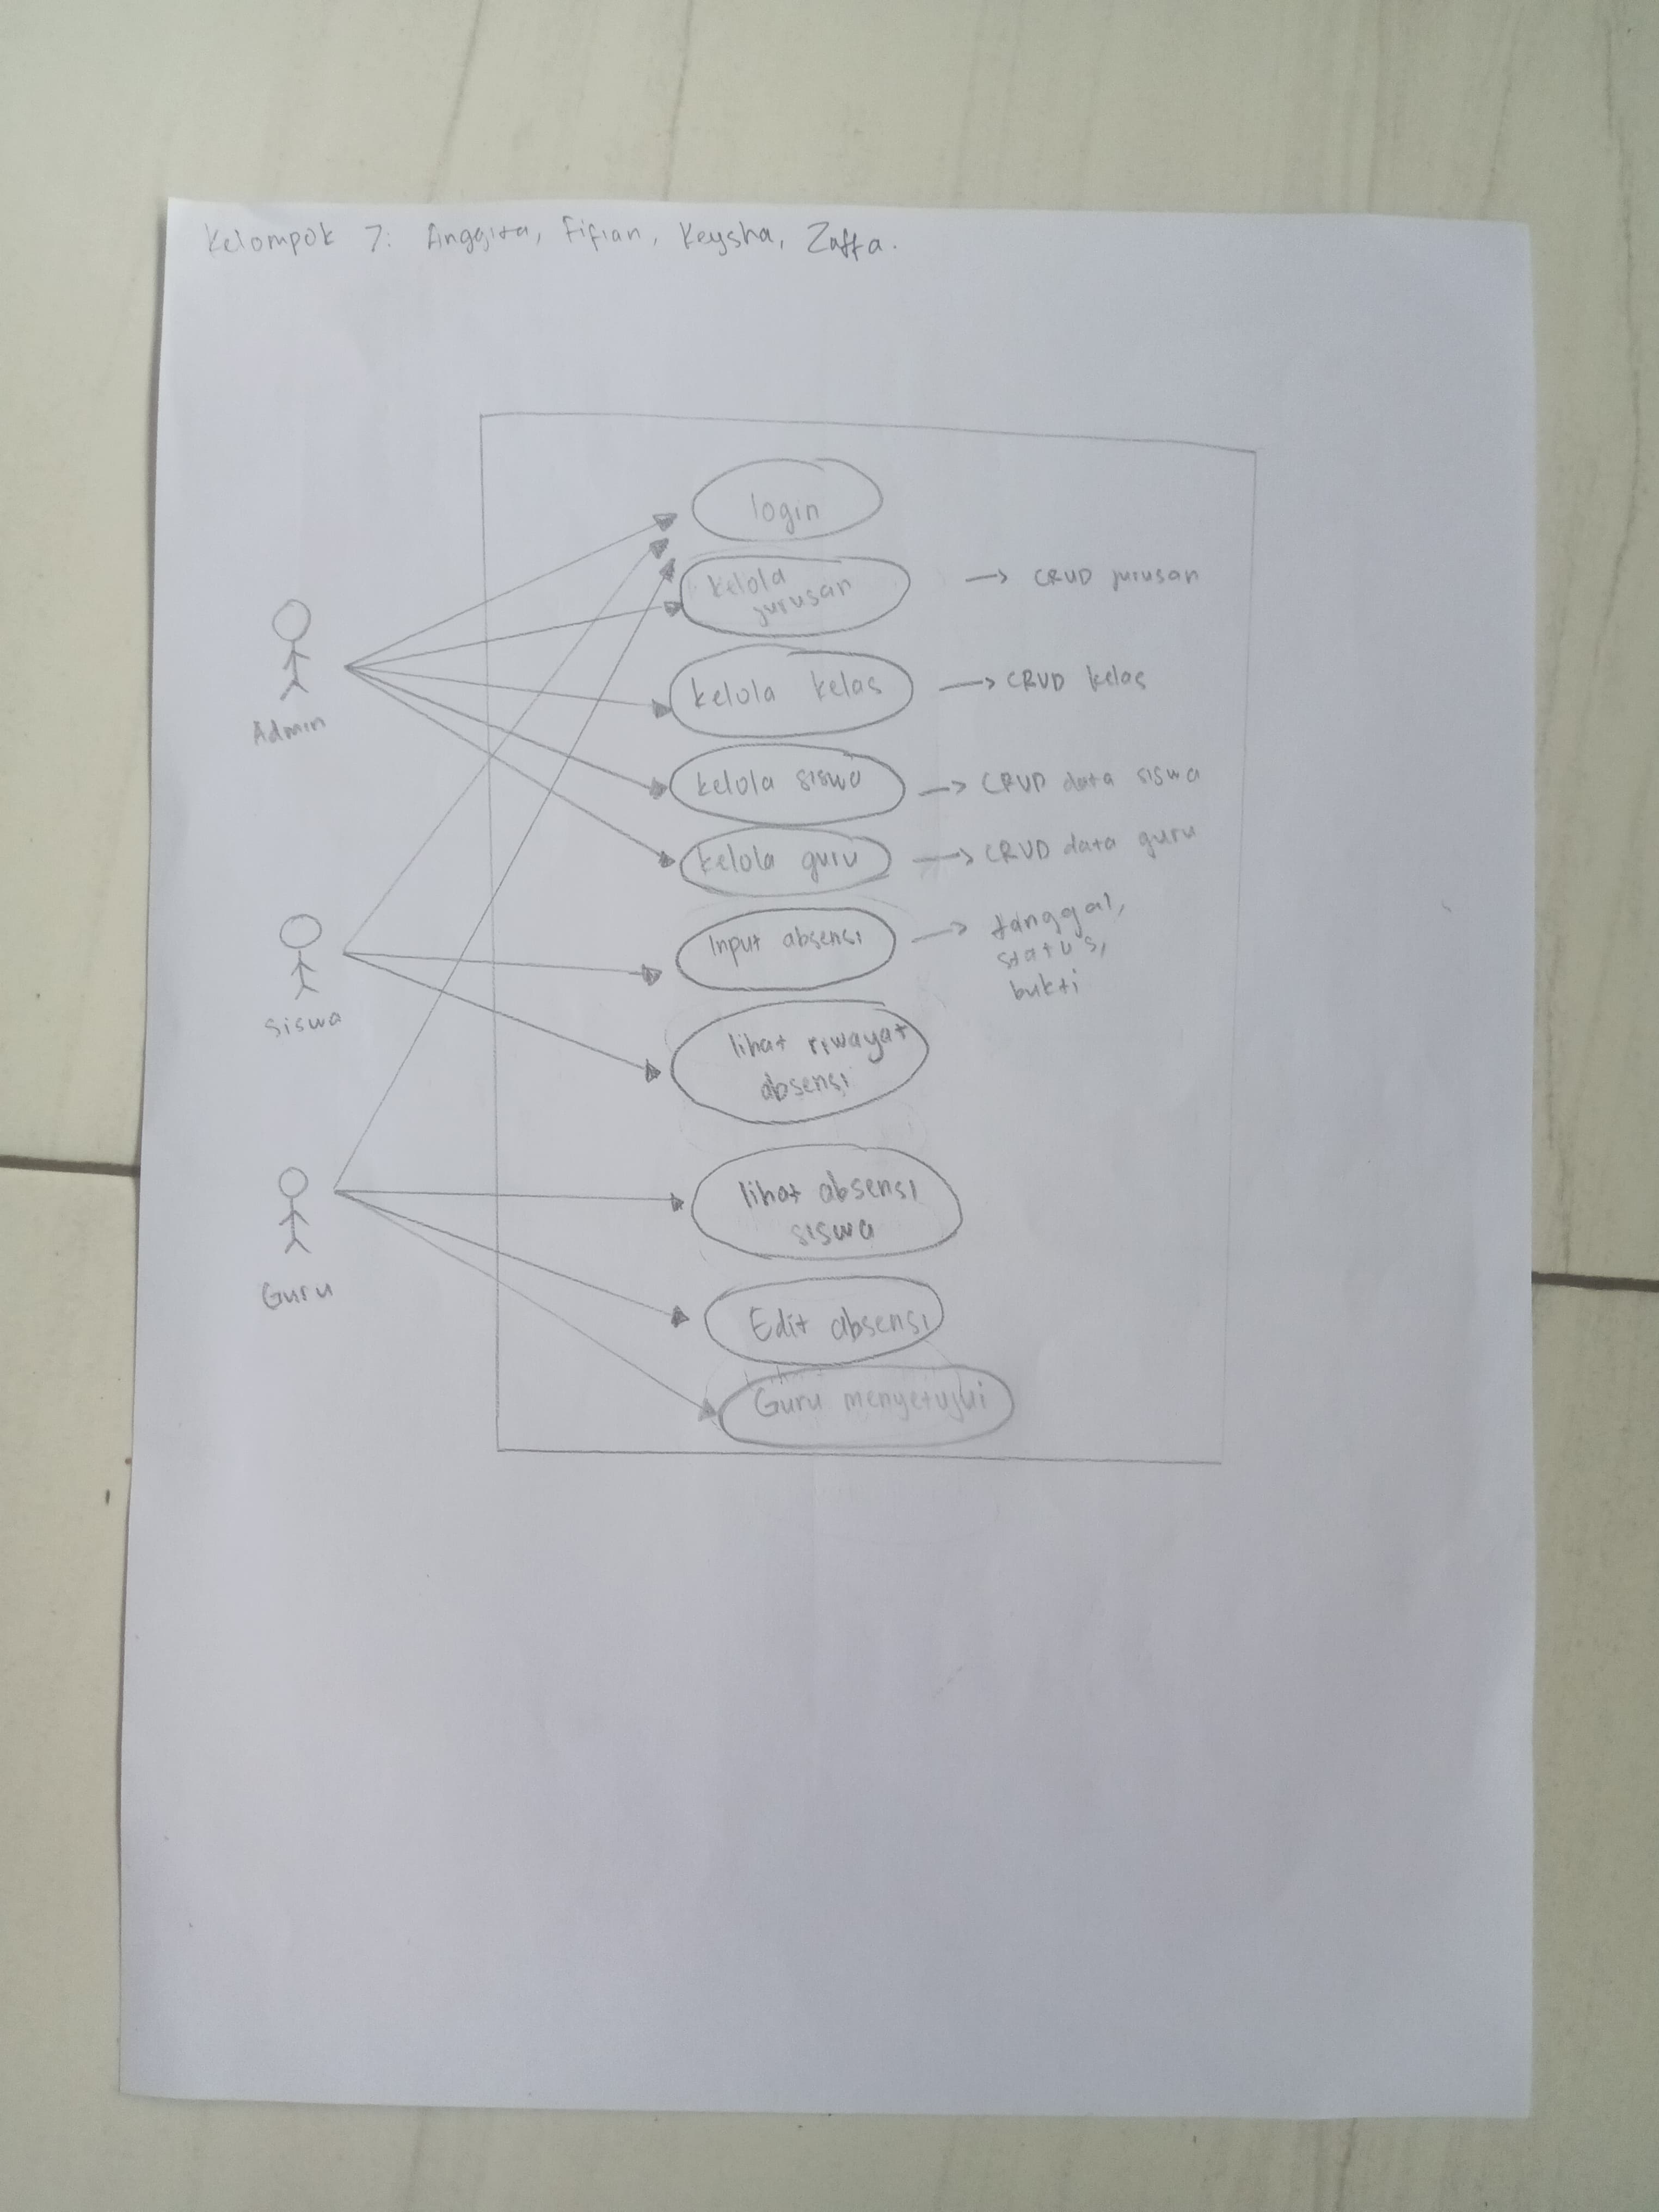 Kelompok 7: Anggita, Fifian, Keysha, Zaffa.
login
kelola
jurusan
→ CRUD jurusan
Admin
kelola kelas
→ CRUD kelas
kelola siswa
→ CRUD data siswa
kelola guru
→ CRUD data guru
Input absensi
→ tanggal,
status,
bukti
Siswa
lihat riwayat
absensi
lihat absensi
siswa
Guru
Edit absensi
Guru menyetujui